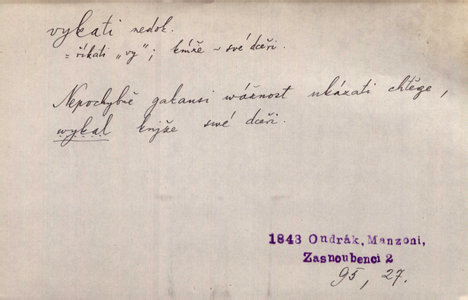 vykati nedok.
= říkati „vy"; kníže ~ své dceři.
Nepochybně galansi wážnost ukázati chtěge,
wykal knjže swé dceři.
1843 Ondrák, Manzoni,
Zasnoubenci 2
95, 27.